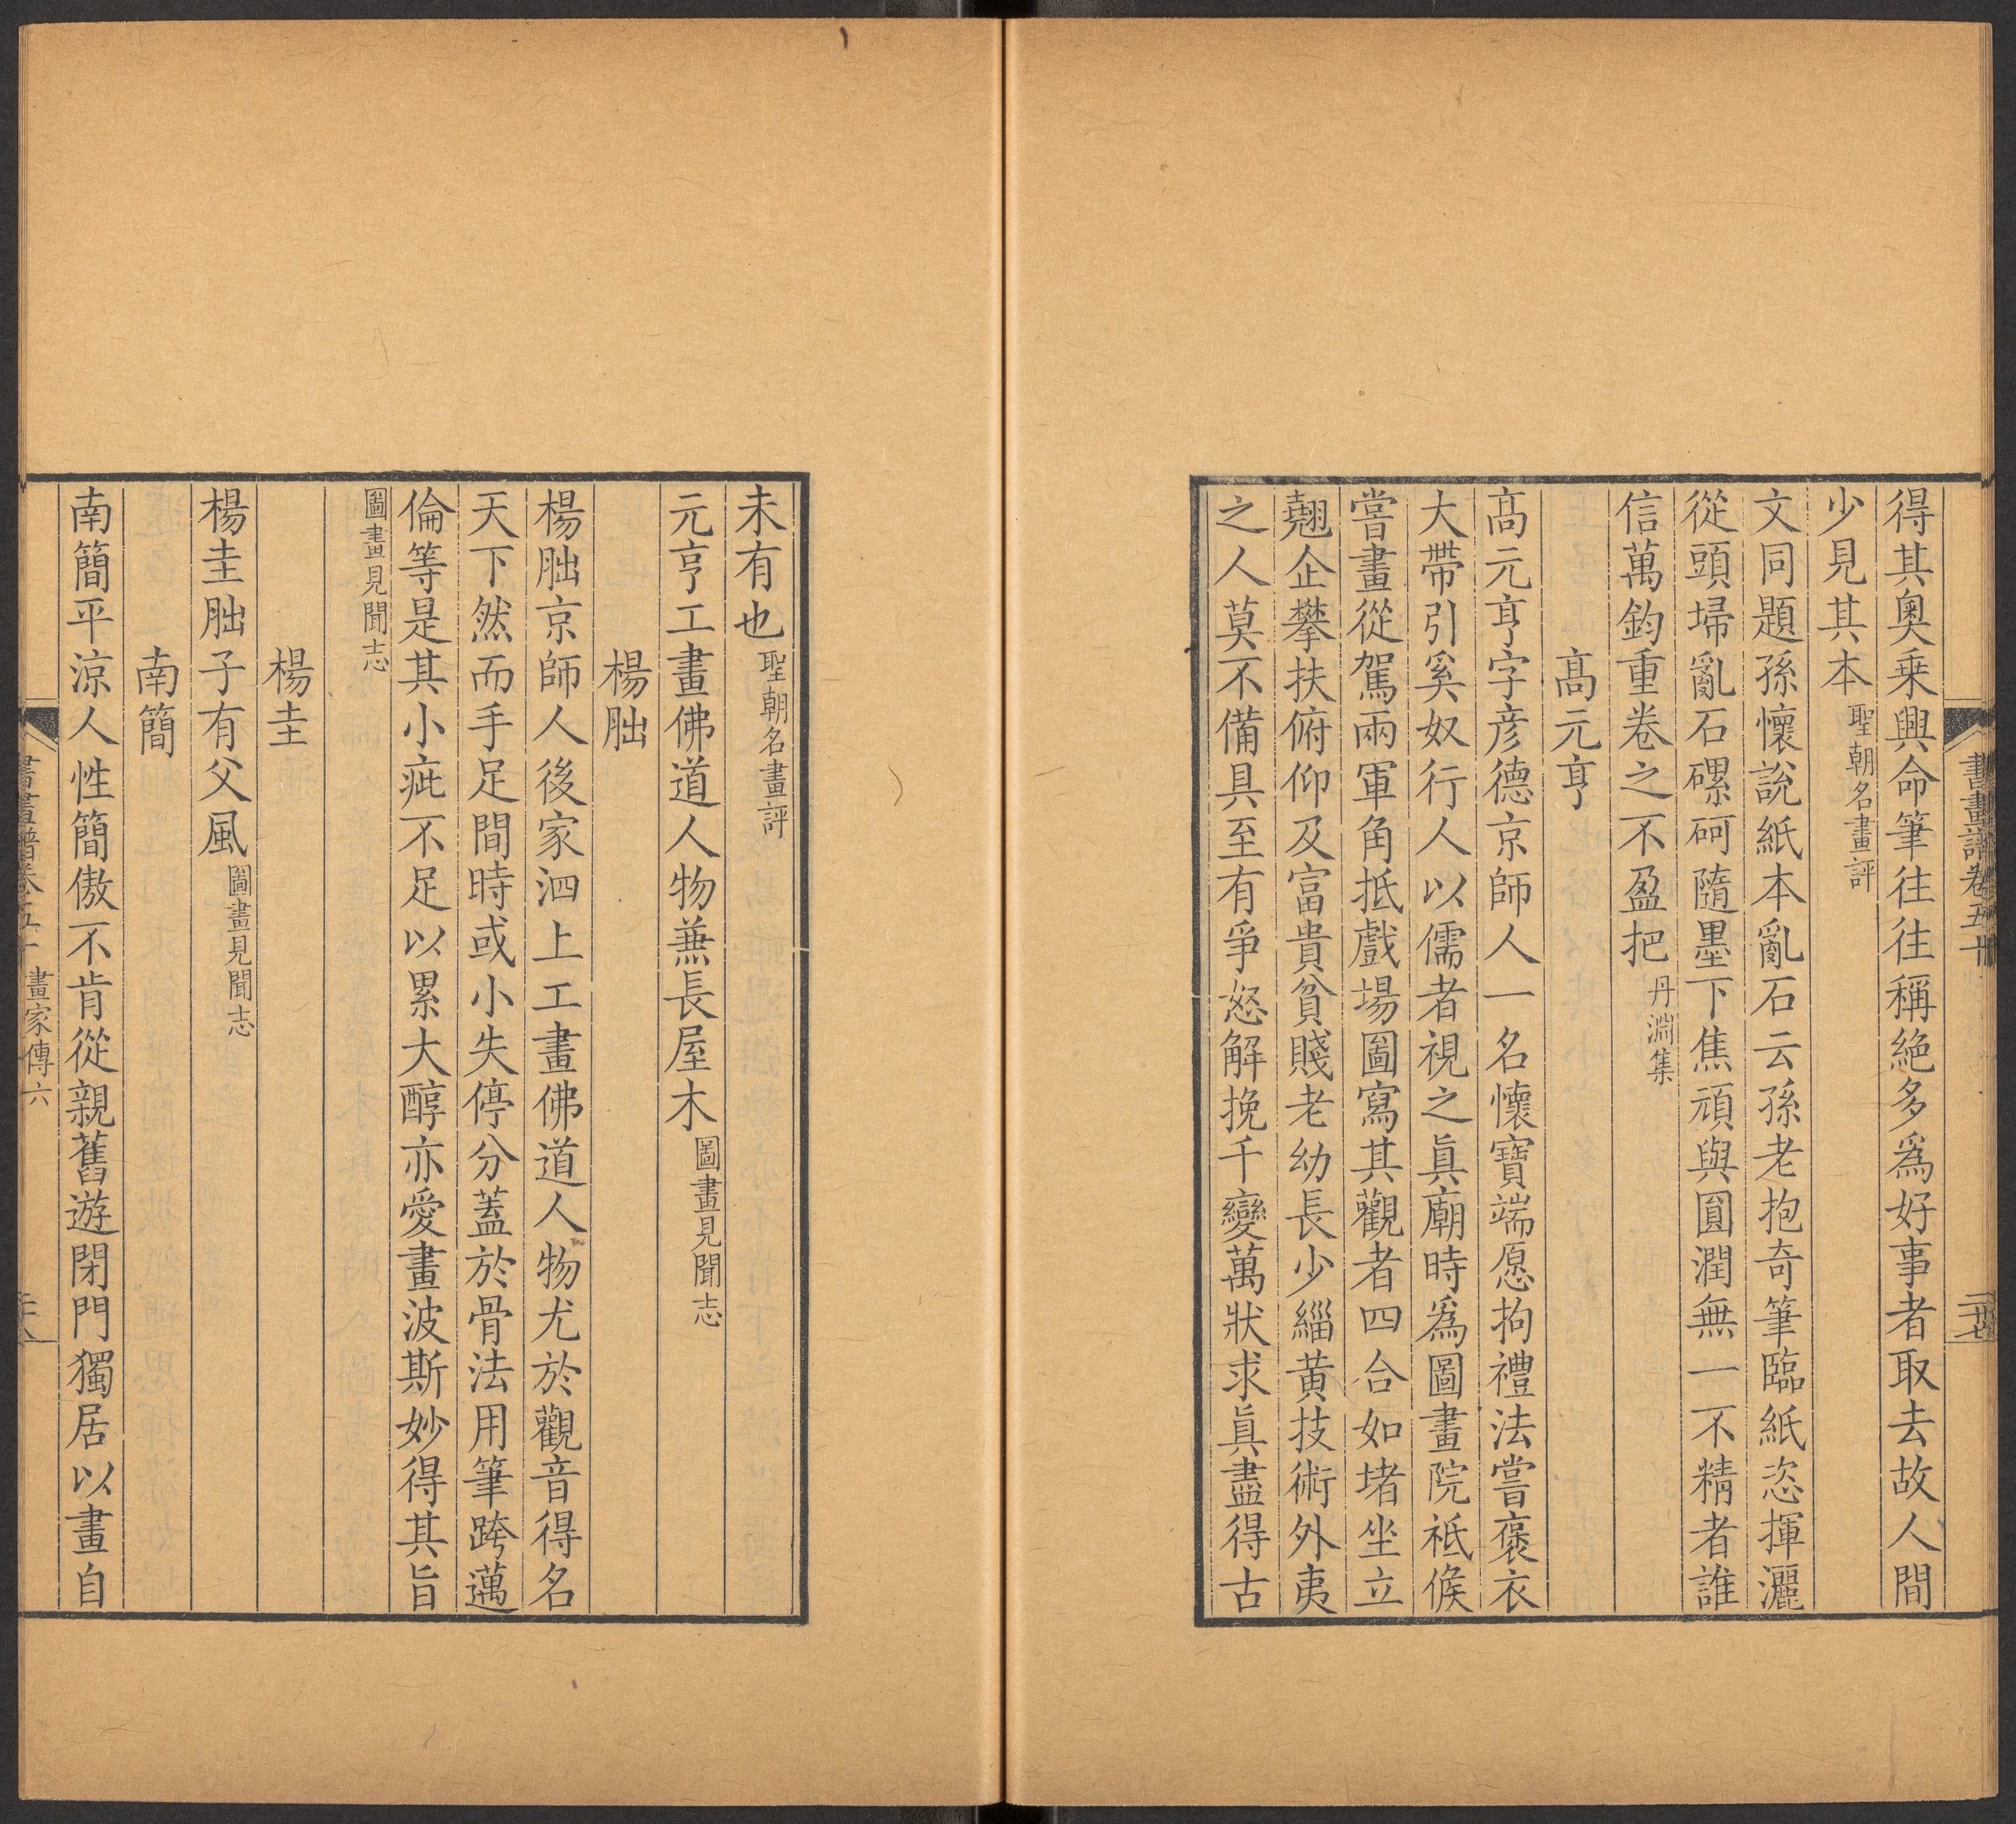 書畫譜卷五十
得其奧乘興命筆往往稱絶多爲好事者取去故人間
少見其本聖朝名畫評
文同題孫懷說紙本亂石云孫老抱奇筆臨紙恣揮灑
從頭埽亂石磥砢隨墨下焦頑與圓潤無一不精者誰
信萬鈞重卷之不盈把丹淵集
高元亨
高元亨字彦德京師人一名懷寶端愿拘禮法嘗褒衣
大帶引奚奴行人以儒者視之眞廟時爲圖畫院祗候
嘗畫從駕兩軍角抵戲場圖寫其觀者四合如堵坐立
翹企攀扶俯仰及富貴貧賤老幼長少緇黄技術外夷
之人莫不備具至有爭怒解挽千變萬狀求眞盡得古
未有也聖朝名畫評
元亨工畫佛道人物蕪長屋木圖畫見聞志
楊朏
楊朏京師人後家泗上工畫佛道人物尤於觀音得名
天下然而手足間時或小失停分蓋於骨法用筆跨邁
倫等是其小疵不足以累大醇亦愛畫波斯妙得其旨
圖畫見聞志
楊圭
楊圭朏子有父風圖畫見聞志
南簡
南簡平涼人性簡傲不肯從親舊遊閉門獨居以畫自
書畫譜卷五十 畫家傳六